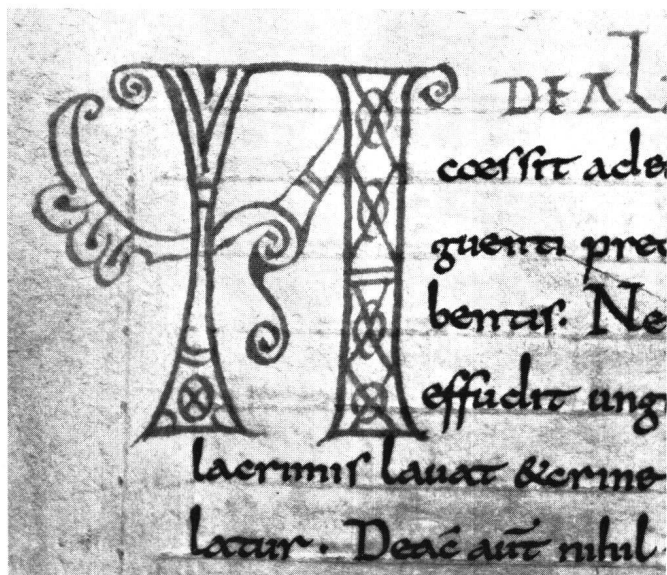 A DEAL
coessit ad e
guenti pre
bentis. Ne
effudit ung
lacrimis lavat & crine
latur. Deac̄ aut̄ nihil